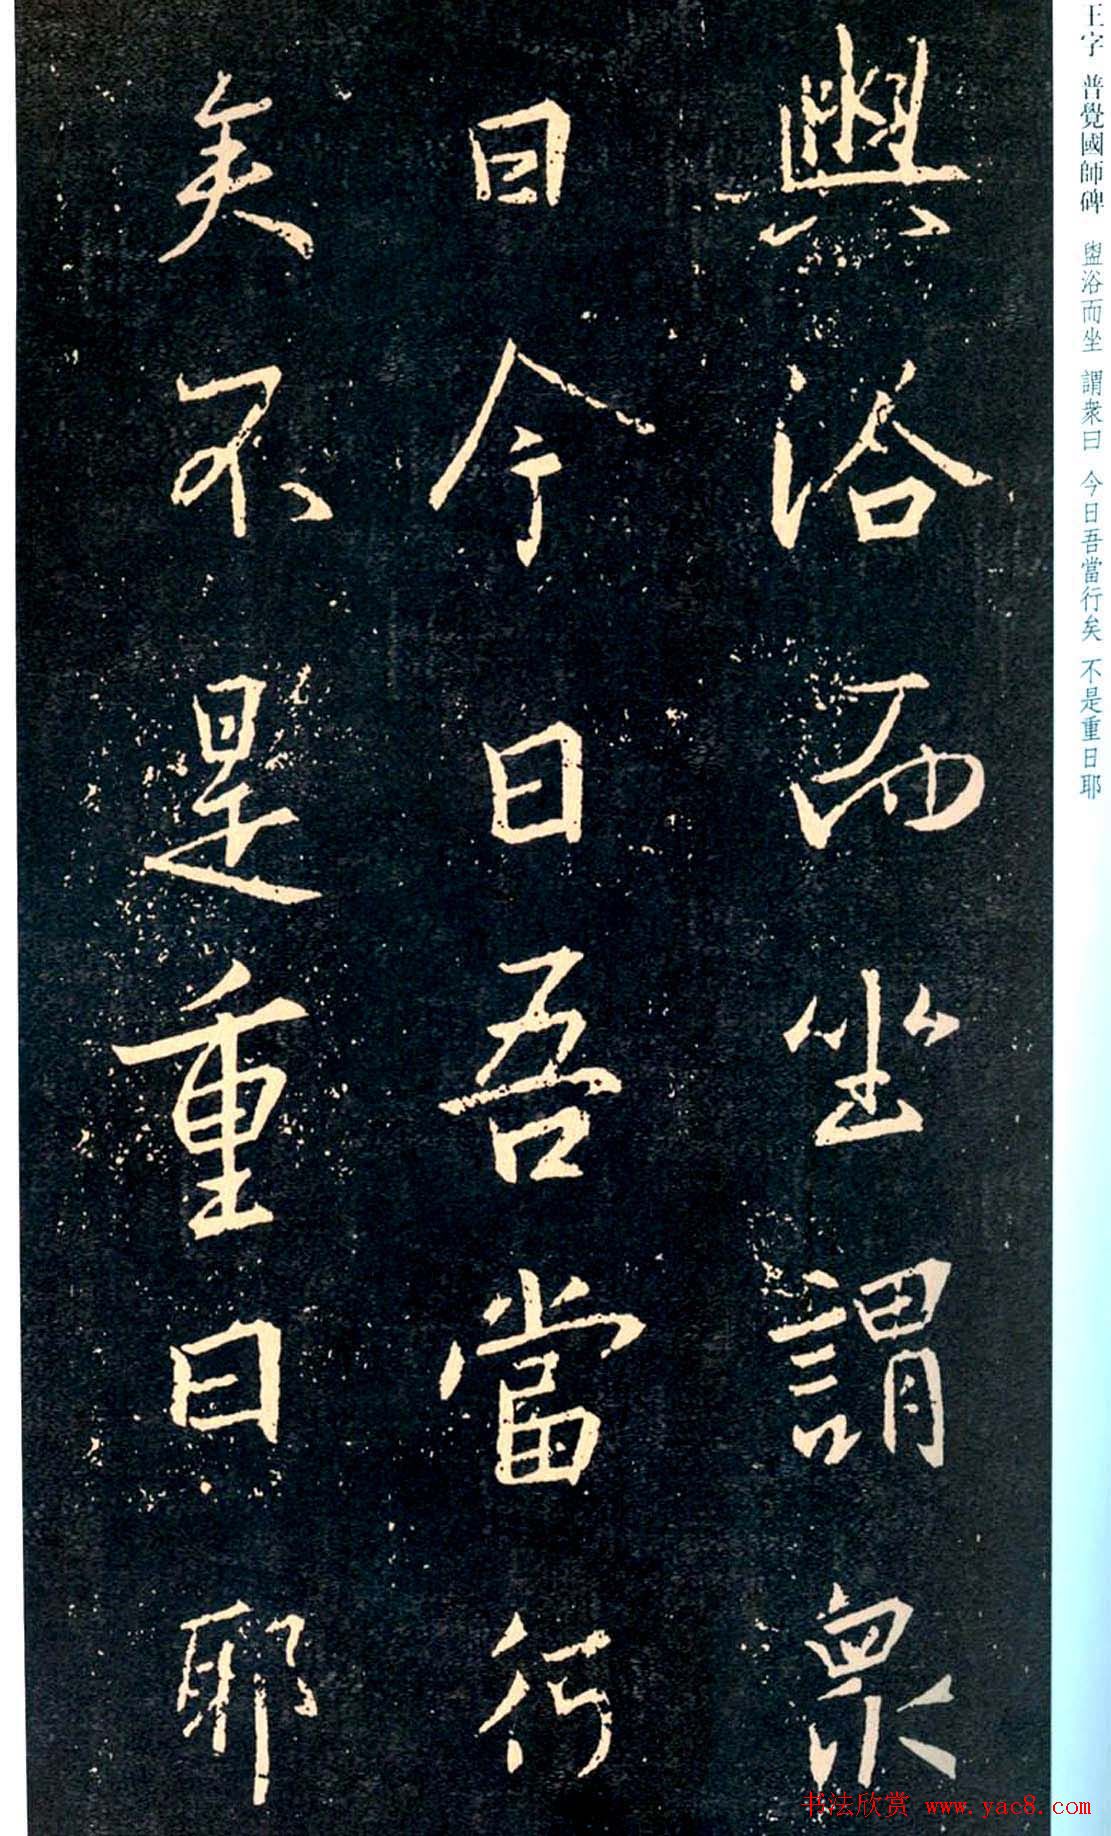 王字 普覺國師碑 盥浴而坐 謂衆曰 今日吾當行矣 不是重日耶
興浴而坐謂衆
曰今日吾當行
矣不是重日耶
书法欣赏 www.yac8.com